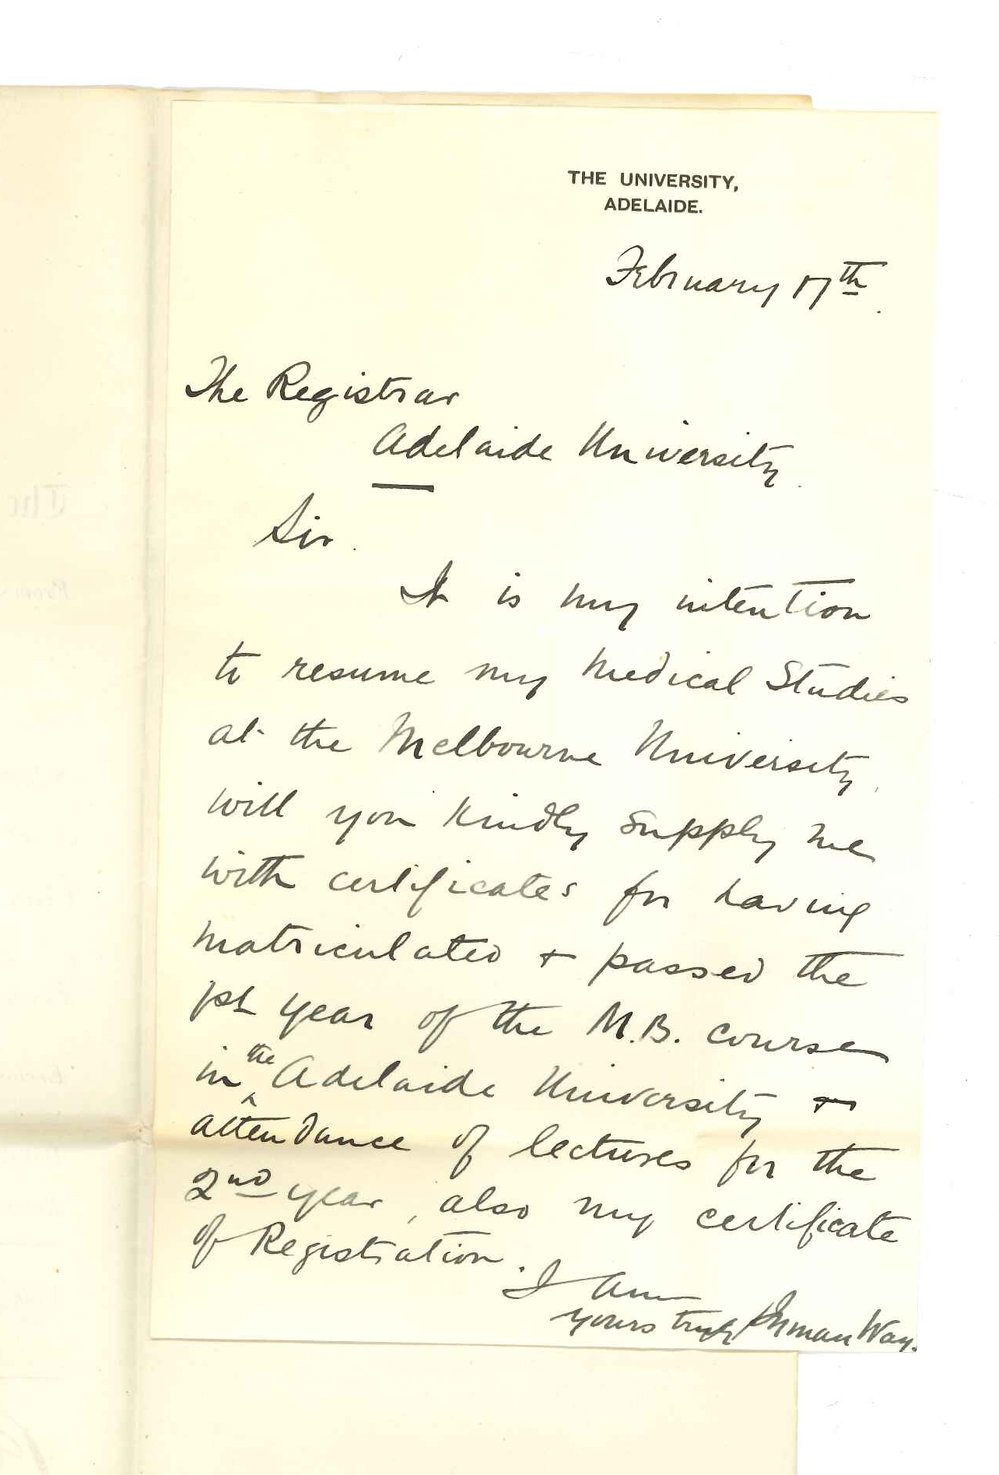 THE UNIVERSITY,
ADELAIDE.
February 17th.
The Registrar
Adelaide University.
Sir.
It is my intention
to resume my Medical Studies
at the Melbourne University,
will you kindly supply me
with certificates for having
matriculated + passed the
1st year of the M.B. course
in the Adelaide University +
attendance of lectures for the
2nd year, also my certificate
of Registration.
I am
yours truly Inman Way.